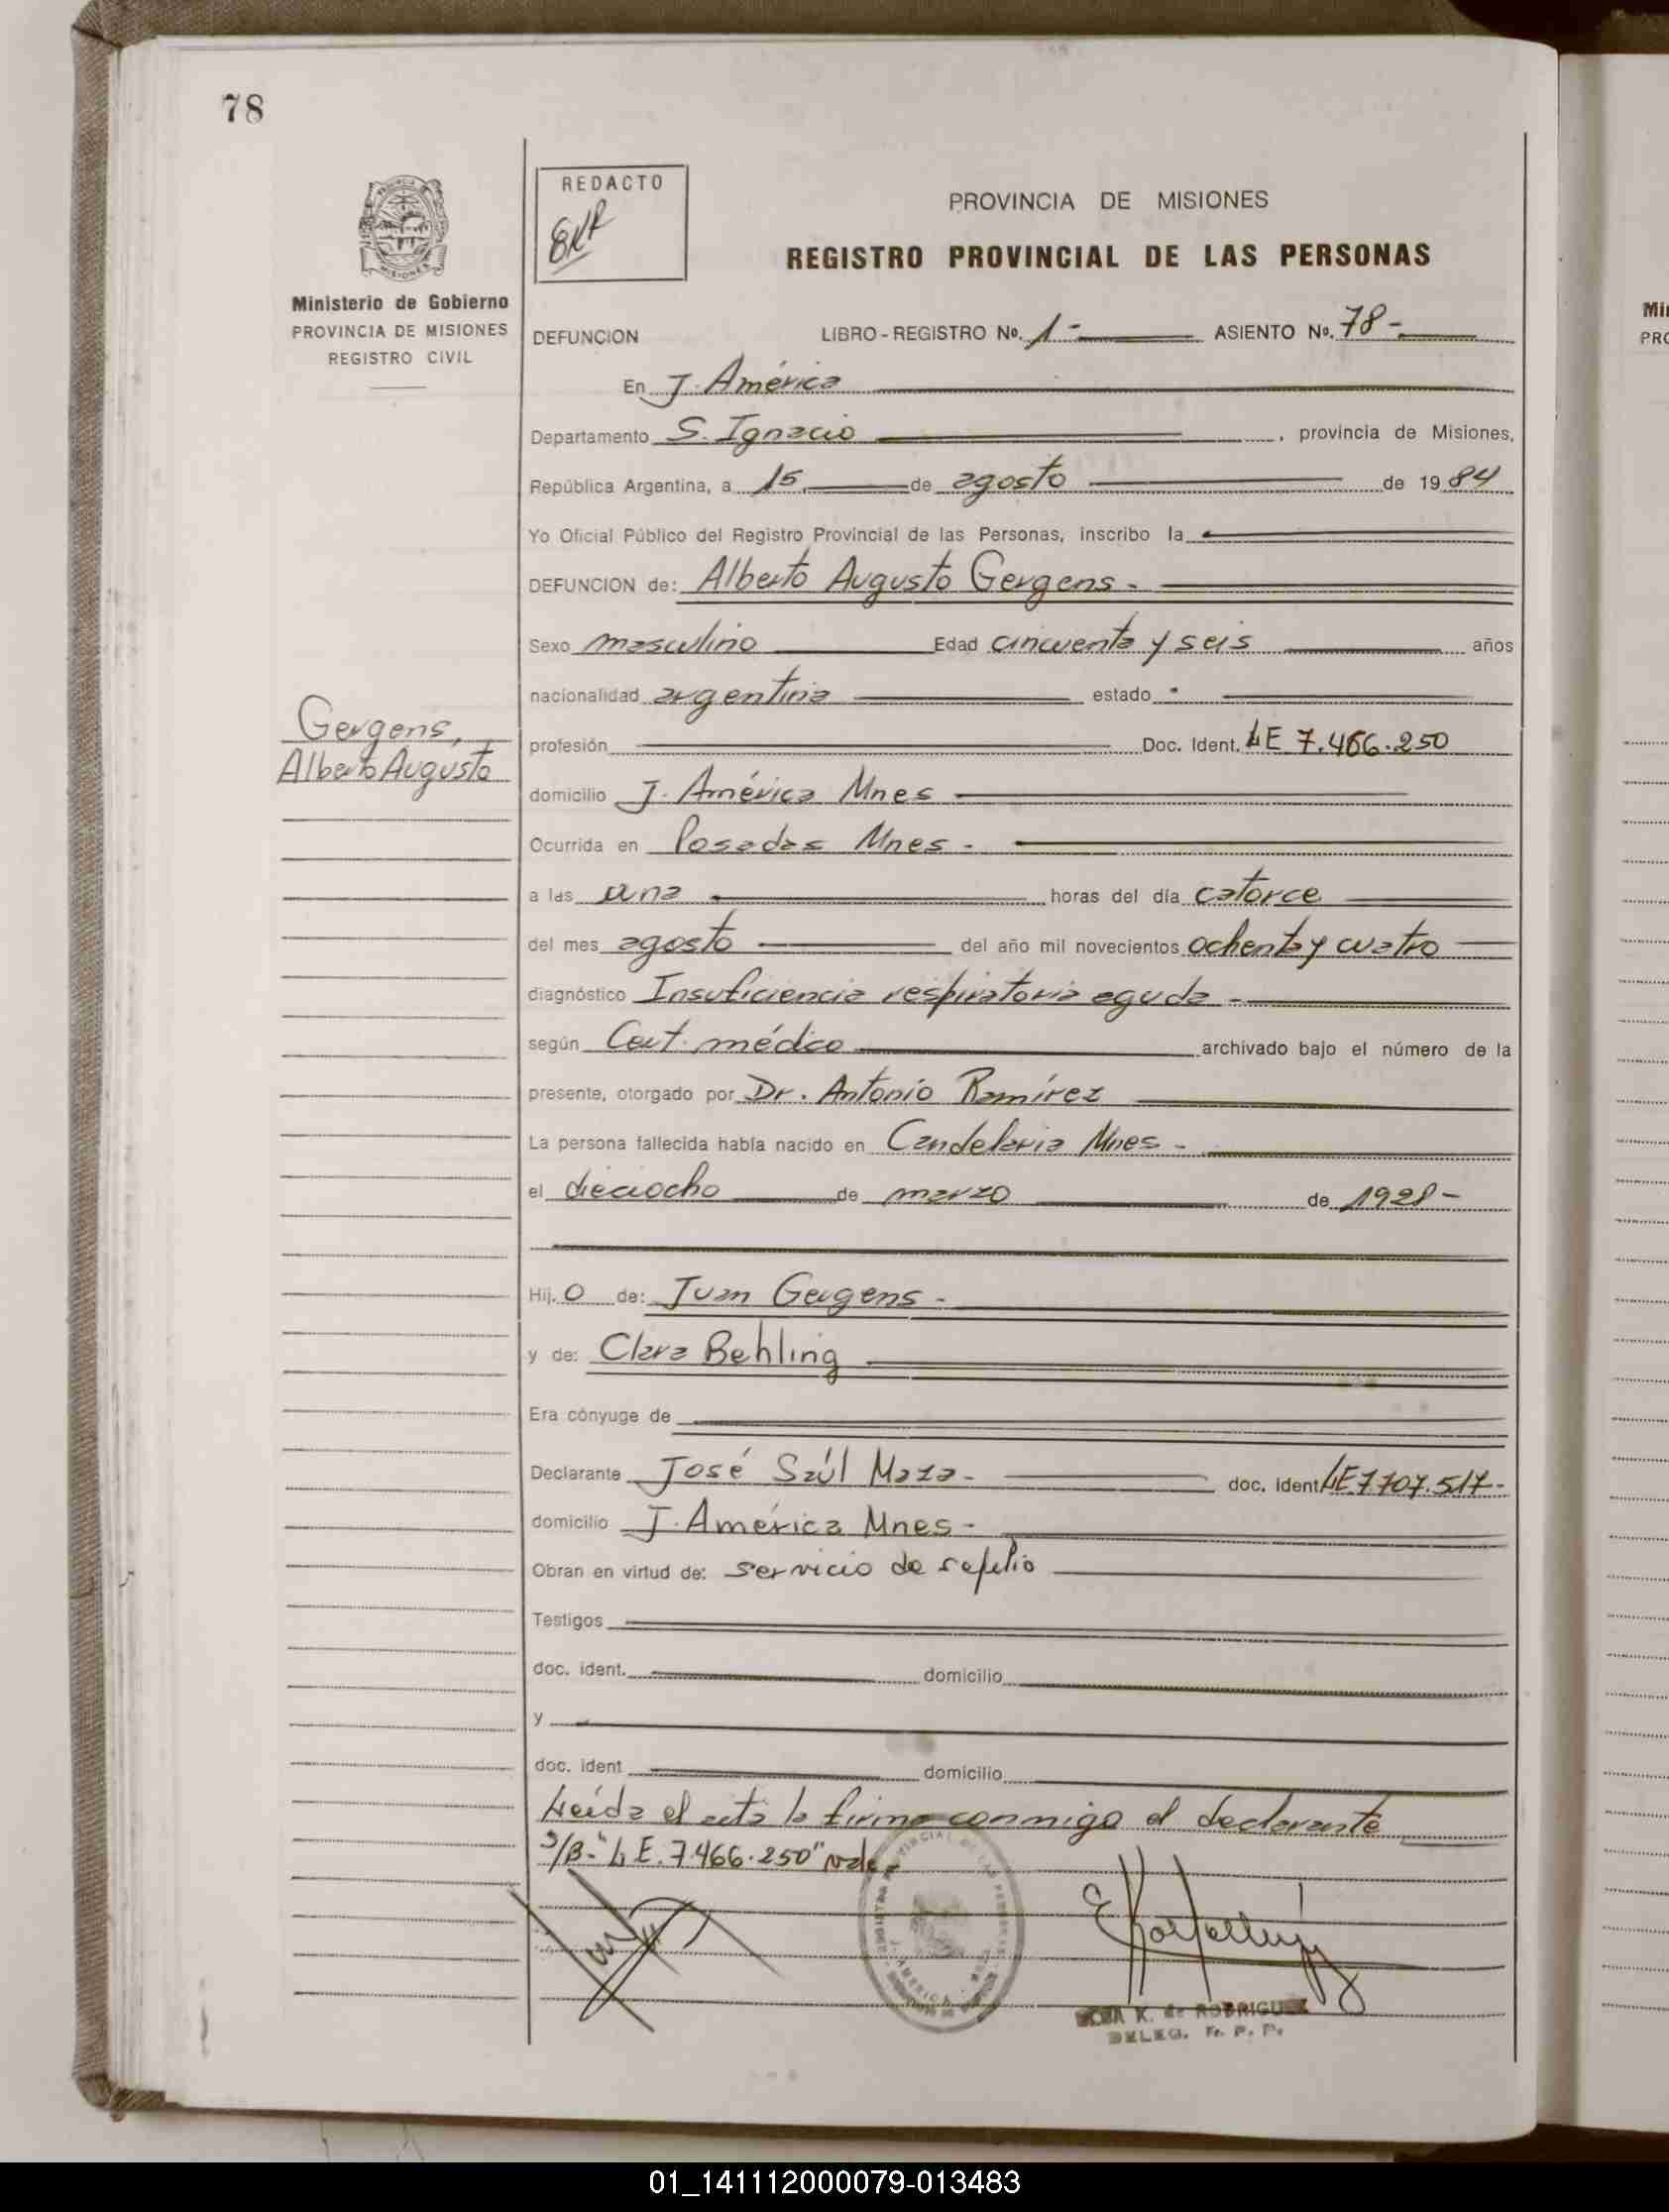 78
REDACTO
PROVINCIA DE MISIONES
REGISTRO PROVINCIAL DE LAS PERSONAS
Ministerio de Gobierno
PROVINCIA DE MISIONES
REGISTRO CIVIL
DEFUNCION LIBRO - REGISTRO Nº. 1 - ASIENTO Nº. 78 -
En J. América
Departamento S. Ignacio, provincia de Misiones,
República Argentina, a 15 de agosto de 1984
Yo Oficial Público del Registro Provincial de las Personas, inscribo la
DEFUNCION de: Alberto Augusto Gergens -
Sexo masculino Edad cincuenta y seis años
nacionalidad argentina estado
Gergens,
Alberto Augusto
profesión Doc. Ident. LE 7.466.250
domicilio J. América Mnes
Ocurrida en Posadas Mnes -
a las una horas del día catorce
del mes agosto del año mil novecientos ochenta y cuatro
diagnóstico Insuficiencia respiratoria aguda -
según Cert. médico archivado bajo el número de la
presente, otorgado por Dr. Antonio Ramírez
La persona fallecida había nacido en Candelaria Mnes -
el dieciocho de marzo de 1928 -
Hijo de: Juan Gergens -
y de: Clara Behling
Era cónyuge de
Declarante José Saúl Maza - doc. ident LE 7707.517 -
domicilio J. América Mnes -
Obran en virtud de: servicio de sepelio
Testigos
doc. ident. domicilio
y
doc. ident domicilio
Leída el acta la firma conmigo el declarante
S/B - "L E. 7.466.250" vale -
K. de RODRIGUEZ
DELEG. R. P. P.
01_141112000079-013483